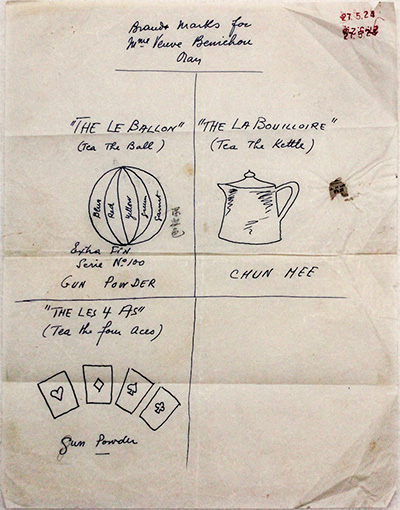 Brands Marks for
Mme Veuve Benichou
Oran
27.5.24
"THE LE BALLON"
(Tea The Ball)
Blue
Red
Yellow
Green
Garnet
Extra Fin
Serie No 100
GUN POWDER
"THE LA BOUILLOIRE"
(Tea The Kettle)
CHUN MEE
"THE LES 4 AS"
(Tea the four aces)
Gun Powder